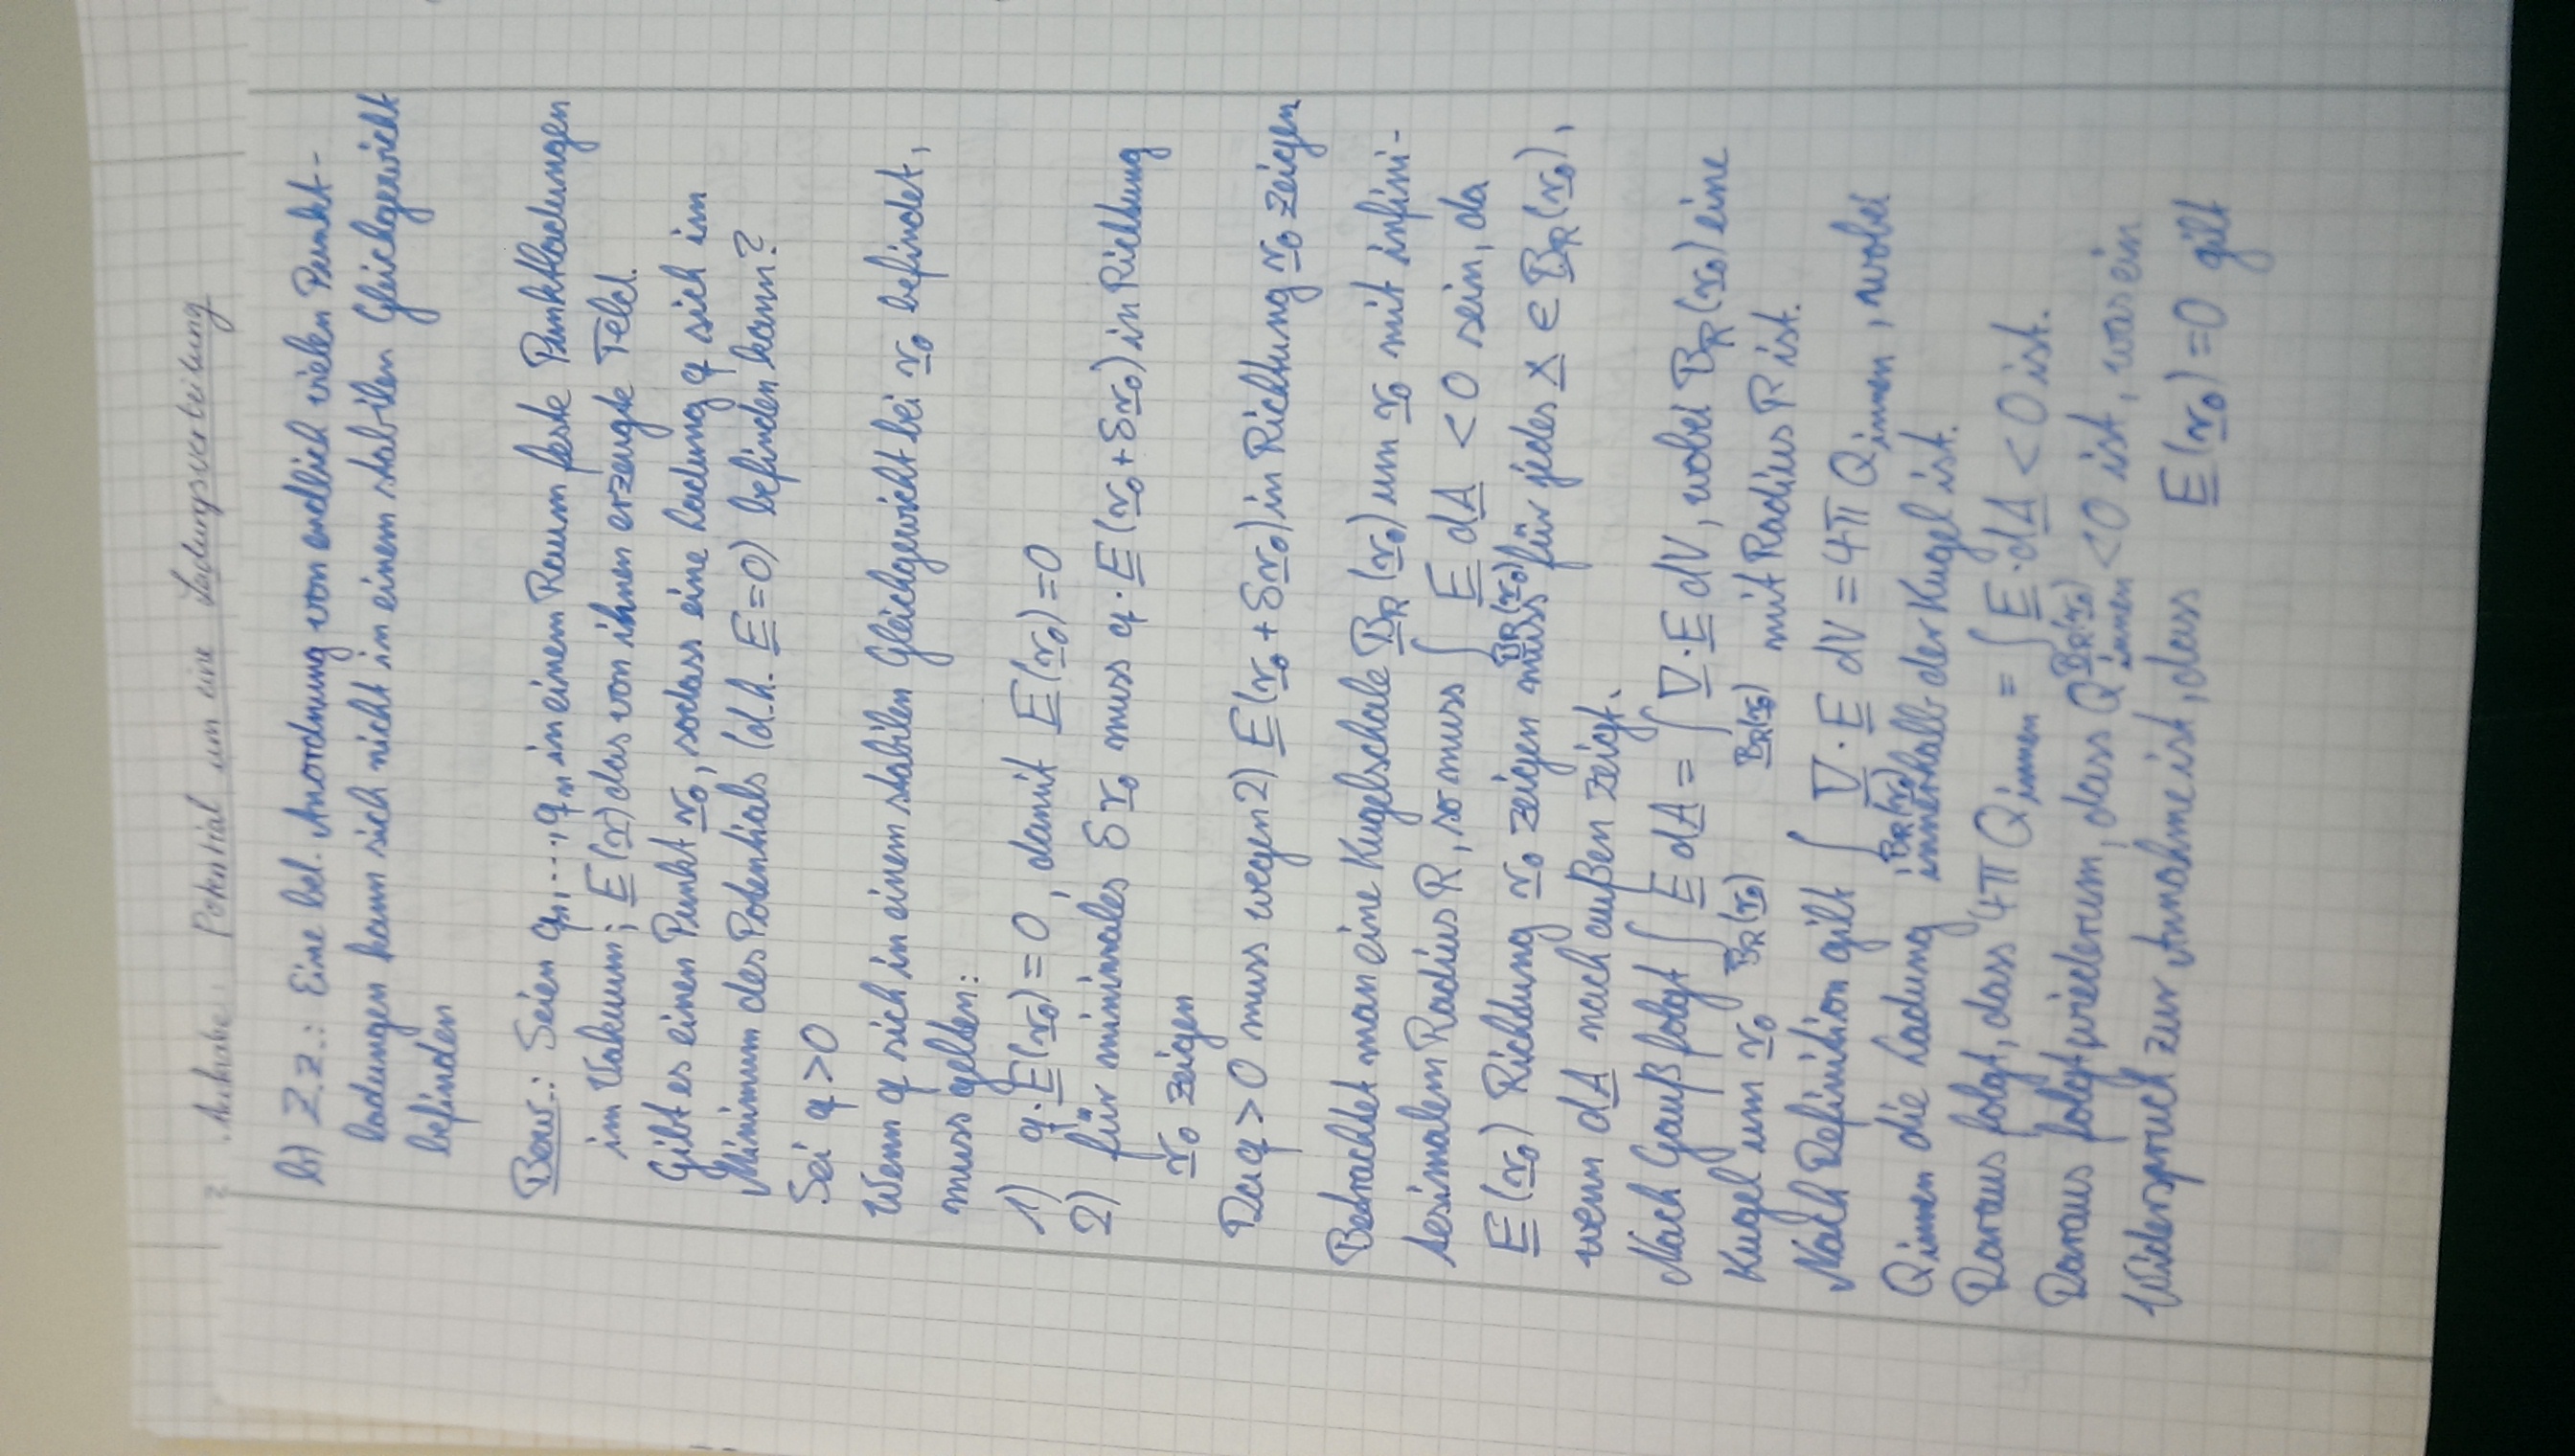 Aufgabe: Potential um eine Ladungsverteilung
b) Z.z.: Eine bel. Anordnung von endlich vielen Punkt-
ladungen kann sich nicht in einem stabilen Gleichgewicht
befinden
Bew.: Seien q₁,...,qₙ in einem Raum feste Punktladungen
im Vakuum; E(r) das von ihnen erzeugte Feld.
Gibt es einen Punkt r₀, sodass eine Ladung q sich im
Minimum des Potentials (d.h. E=0) befinden kann?
Sei q>0
Wenn q sich in einem stabilen Gleichgewicht bei r₀ befindet,
muss gelten:
1) q·E(r₀)=0, damit E(r₀)=0
2) für minimales δr₀ muss q·E(r₀+δr₀) in Richtung
r₀ zeigen
Da q>0 muss wegen 2) E(r₀+δr₀) in Richtung r₀ zeigen
Betrachtet man eine Kugelschale B_R(r₀) um r₀ mit infini-
tesimalem Radius R, so muss ∫_{B_R(r₀)} E dA < 0 sein, da
E(r₀) Richtung r₀ zeigen muss für jedes x ∈ B_R(r₀),
wenn dA nach außen zeigt.
Nach Gauß folgt ∫_{B_R(r₀)} E dA = ∫_{B_R(r₀)} ∇·E dV, wobei B_R(r₀) eine
Kugel um r₀ mit Radius R ist.
Nach Definition gilt ∫_{B_R(r₀)} ∇·E dV = 4π Q_innen, wobei
Q_innen die Ladung innerhalb der Kugel ist.
Daraus folgt, dass 4π Q_innen = ∫_{B_R(r₀)} E·dA < 0 ist.
Daraus folgt wiederum, dass Q_innen < 0 ist, was ein
Widerspruch zur Annahme ist, dass E(r₀)=0 gilt